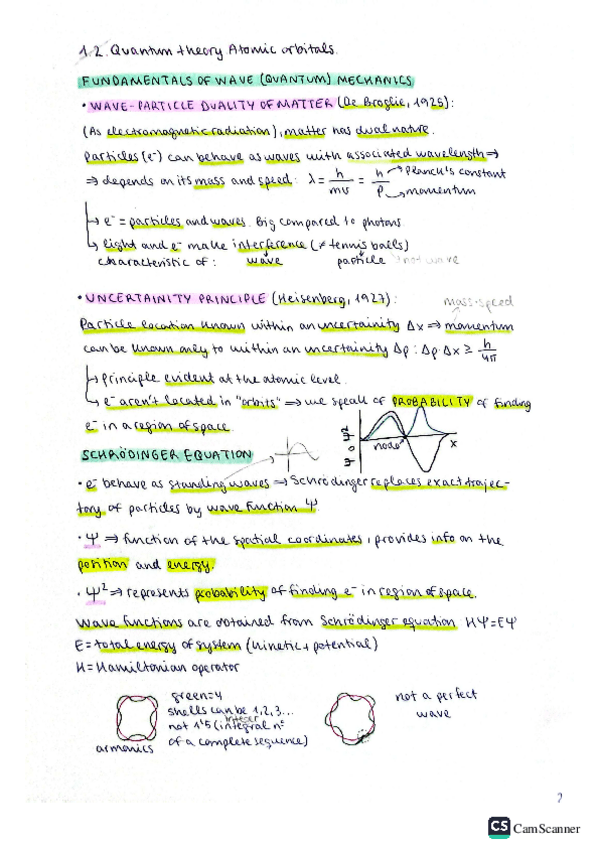 1.2. Quantum theory. Atomic orbitals.
FUNDAMENTALS OF WAVE (QUANTUM) MECHANICS
• WAVE-PARTICLE DUALITY OF MATTER (De Broglie, 1925):
(As electromagnetic radiation), matter has dual nature.
Particles (e⁻) can behave as waves with associated wavelength ⇒
⇒ depends on its mass and speed: λ = h/mv = h/p → Planck's constant
→ momentum
↳ e⁻ = particles and waves. Big compared to photons.
↳ light and e⁻ make interference (≠ tennis balls)
characteristic of: wave particle not wave
• UNCERTAINITY PRINCIPLE (Heisenberg, 1927): mass·speed
Particle location known within an uncertainity Δx ⇒ momentum
can be known only to within an uncertainity Δp: Δp·Δx ≥ h/4π
↳ Principle evident at the atomic level.
↳ e⁻ aren't located in "orbits" ⇒ we speak of PROBABILITY of finding
e⁻ in a region of space.
Ψ 0 Ψ² node x
SCHRÖDINGER EQUATION
• e⁻ behave as standing waves ⇒ Schrödinger replaces exact trajec-
tory of particles by wave function Ψ.
• Ψ ⇒ function of the spatial coordinates, provides info on the
position and energy.
• Ψ² ⇒ represents probability of finding e⁻ in region of space.
Wave functions are obtained from Schrödinger equation HΨ=EΨ
E = total energy of system (kinetic + potential)
H = Hamiltonian operator
green=4
shells can be 1,2,3...
integer
not 1'5 (integral nº
of a complete sequence)
armonics
not a perfect
wave
2
CS CamScanner